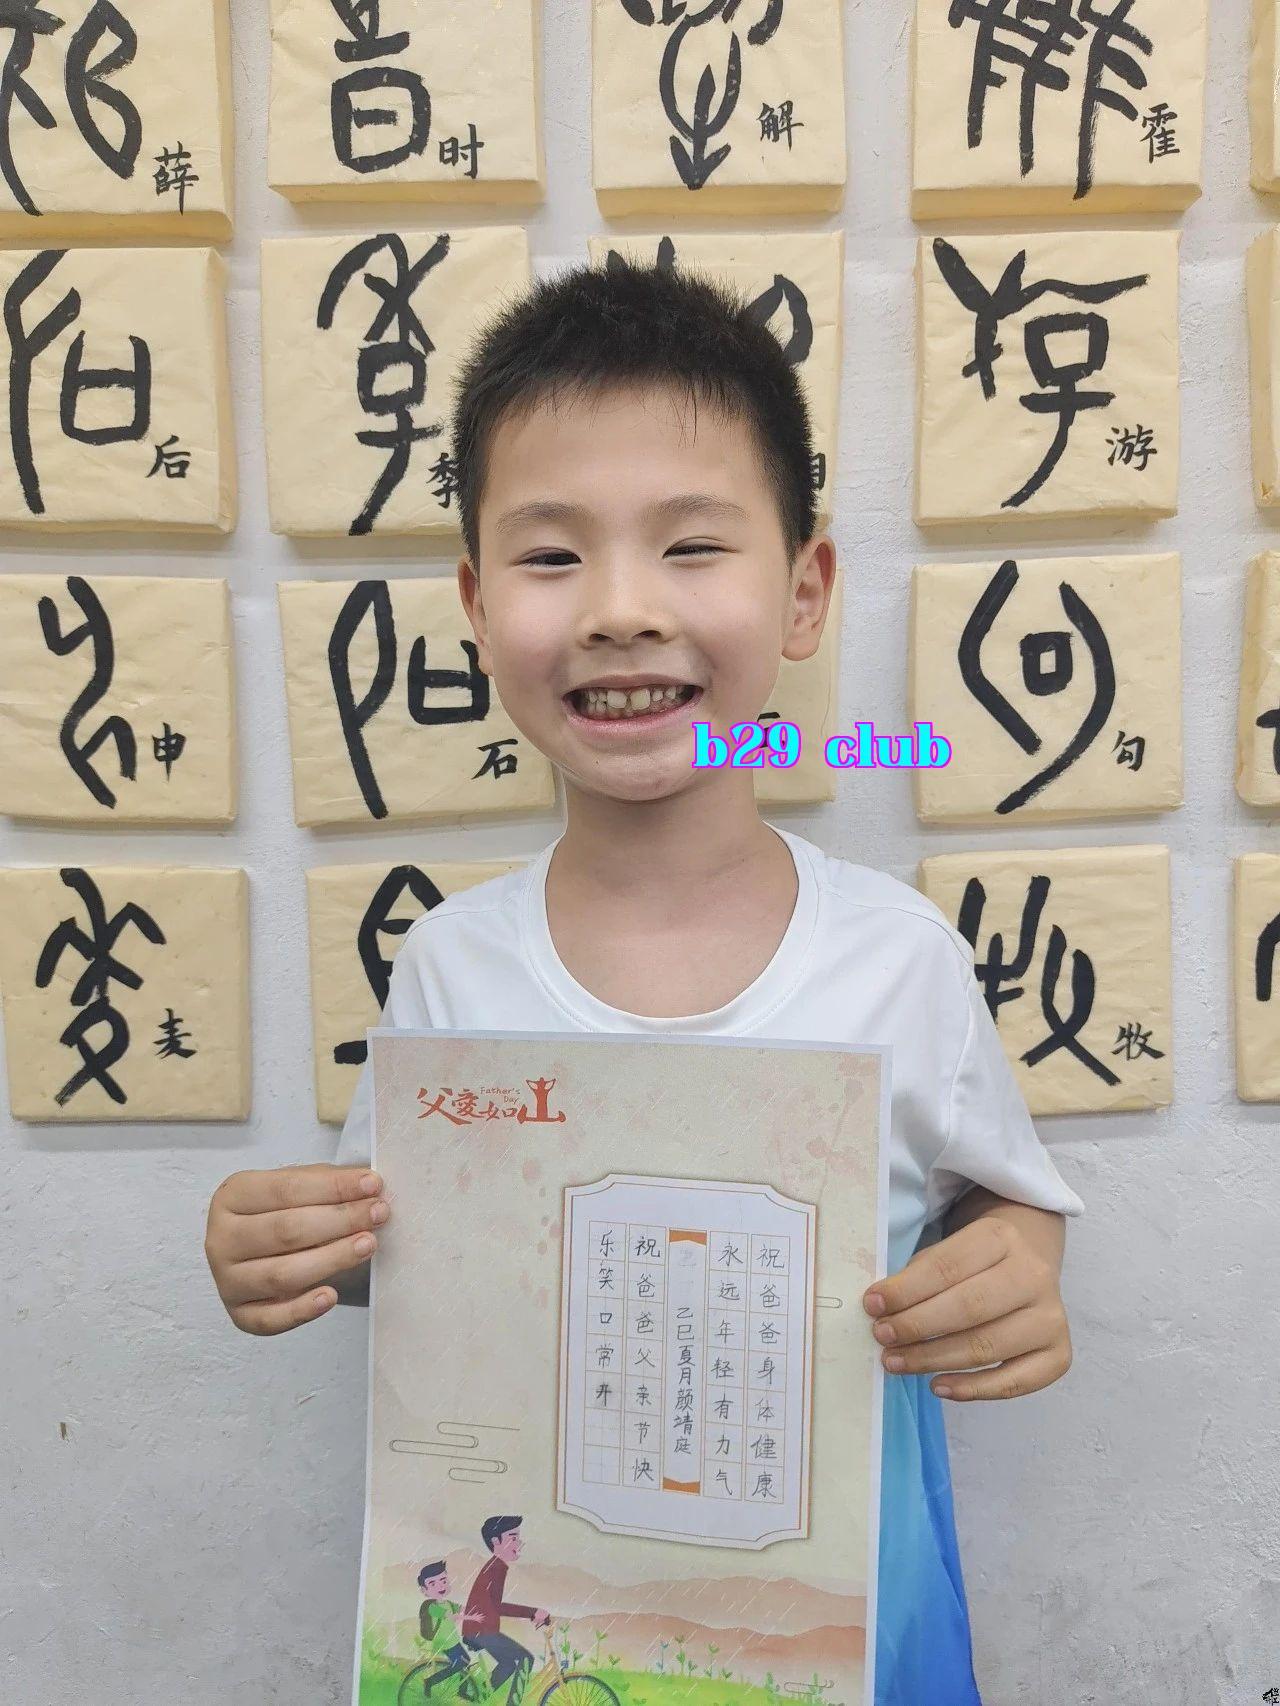 薛
时
解
霍
后
季
游
申
石
b29 club
勾
麦
牧
父爱如山
Father's
Day
祝爸爸身体健康
永远年轻有力气
乙巳夏月颜靖庭
祝爸爸父亲节快
乐笑口常开